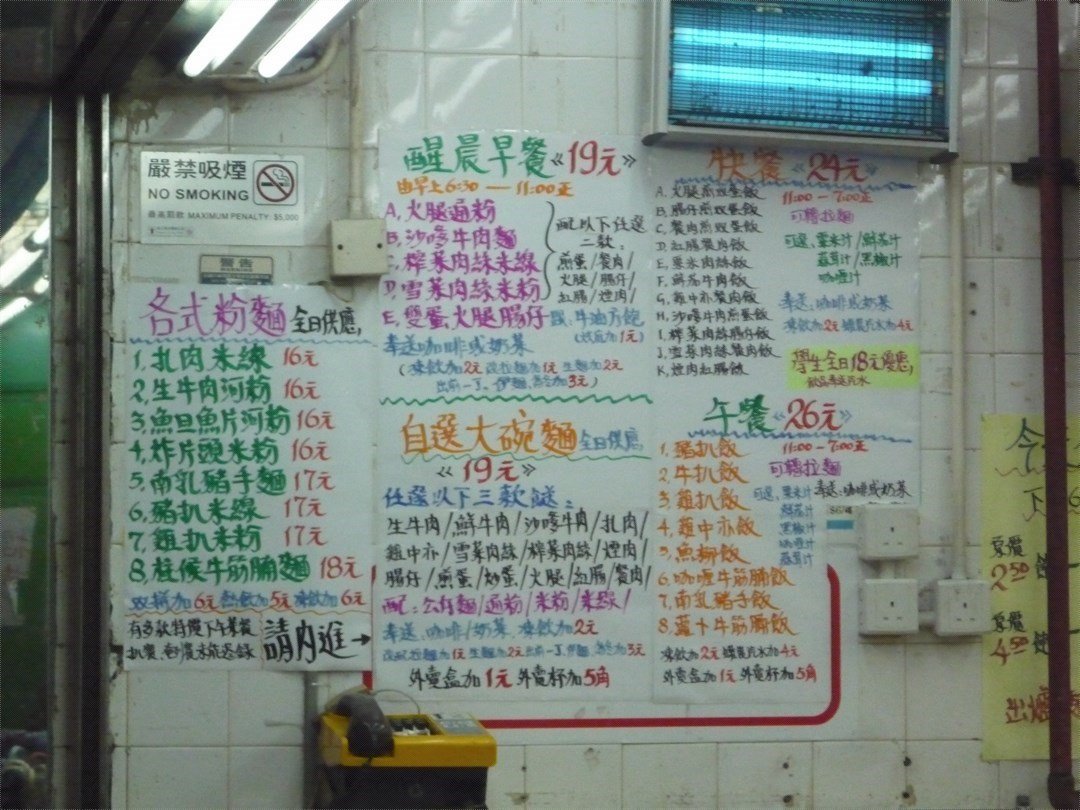 嚴禁吸煙
NO SMOKING
最高罰款 MAXIMUM PENALTY: $5,000
警告
WARNING
各式粉麵 全日供應,
1, 扎肉米線 16元
2, 生牛肉河粉 16元
3, 魚旦魚片河粉 16元
4, 炸片頭米粉 16元
5, 南乳豬手麵 17元
6, 豬扒米線 17元
7, 雞扒米粉 17元
8, 柱候牛筋腩麵 18元
双拼加6元 熱飲加5元 凍飲加6元
有多款特價下午茶餐
請內進→
醒晨早餐《19元》
由早上6:30 — 11:00正
A, 火腿通粉
B, 沙嗲牛肉麵
C, 榨菜肉絲米線
D, 雪菜肉絲米粉
E, 雙蛋、火腿腸仔
配以下任選
二款:
煎蛋/餐肉/
火腿/腸仔/
紅腸/煙肉/
跟: 牛油方飽
奉送咖啡或奶茶
(凍飲加2元 改拉麵加1元 生麵加2元
出前一丁、伊麵、烏冬加3元)
自選大碗麵 全日供應
《19元》
任選以下三款餸:
生牛肉/鮮牛肉/沙嗲牛肉/扎肉/
雞中亦/雪菜肉絲/榨菜肉絲/煙肉/
腸仔/煎蛋/炒蛋/火腿/紅腸/餐肉/
配: 公仔麵/通粉/米粉/米線/
奉送, 咖啡/奶茶, 凍飲加2元
改拉麵加1元 生麵加2元 出前一丁、伊麵、烏冬加3元
外賣盒加1元 外賣杯加5角
快餐《24元》
11:00 — 7:00正
可轉拉麵
A, 火腿煎双蛋飯
B, 腸仔煎双蛋飯
C, 餐肉煎双蛋飯
D, 紅腸餐肉飯
E, 粟米肉絲飯
F, 鮮茄牛肉飯
G, 雞中亦餐肉飯
H, 沙嗲牛肉煎蛋飯
I, 榨菜肉絲腸仔飯
J, 雪菜肉絲餐肉飯
K, 煙肉紅腸飯
可選, 粟米汁/鮮茄汁
蒜茸汁/黑椒汁
咖喱汁
奉送, 咖啡或奶茶
凍飲加2元 罐裝汽水加4元
學生全日18元優惠,
飲品奉送汽水
午餐《26元》
11:00 — 7:00正
可轉拉麵
1, 豬扒飯
2, 牛扒飯
3, 雞扒飯
4, 雞中亦飯
5, 魚柳飯
6, 咖喱牛筋腩飯
7, 南乳豬手飯
8, 蘿卜牛筋腩飯
可選, 粟米汁
鮮茄汁
黑椒汁
咖喱汁
蒜茸汁
奉送, 咖啡或奶茶
凍飲加2元 罐裝汽水加4元
外賣盒加1元 外賣杯加5角
今
下
2.50
4.50